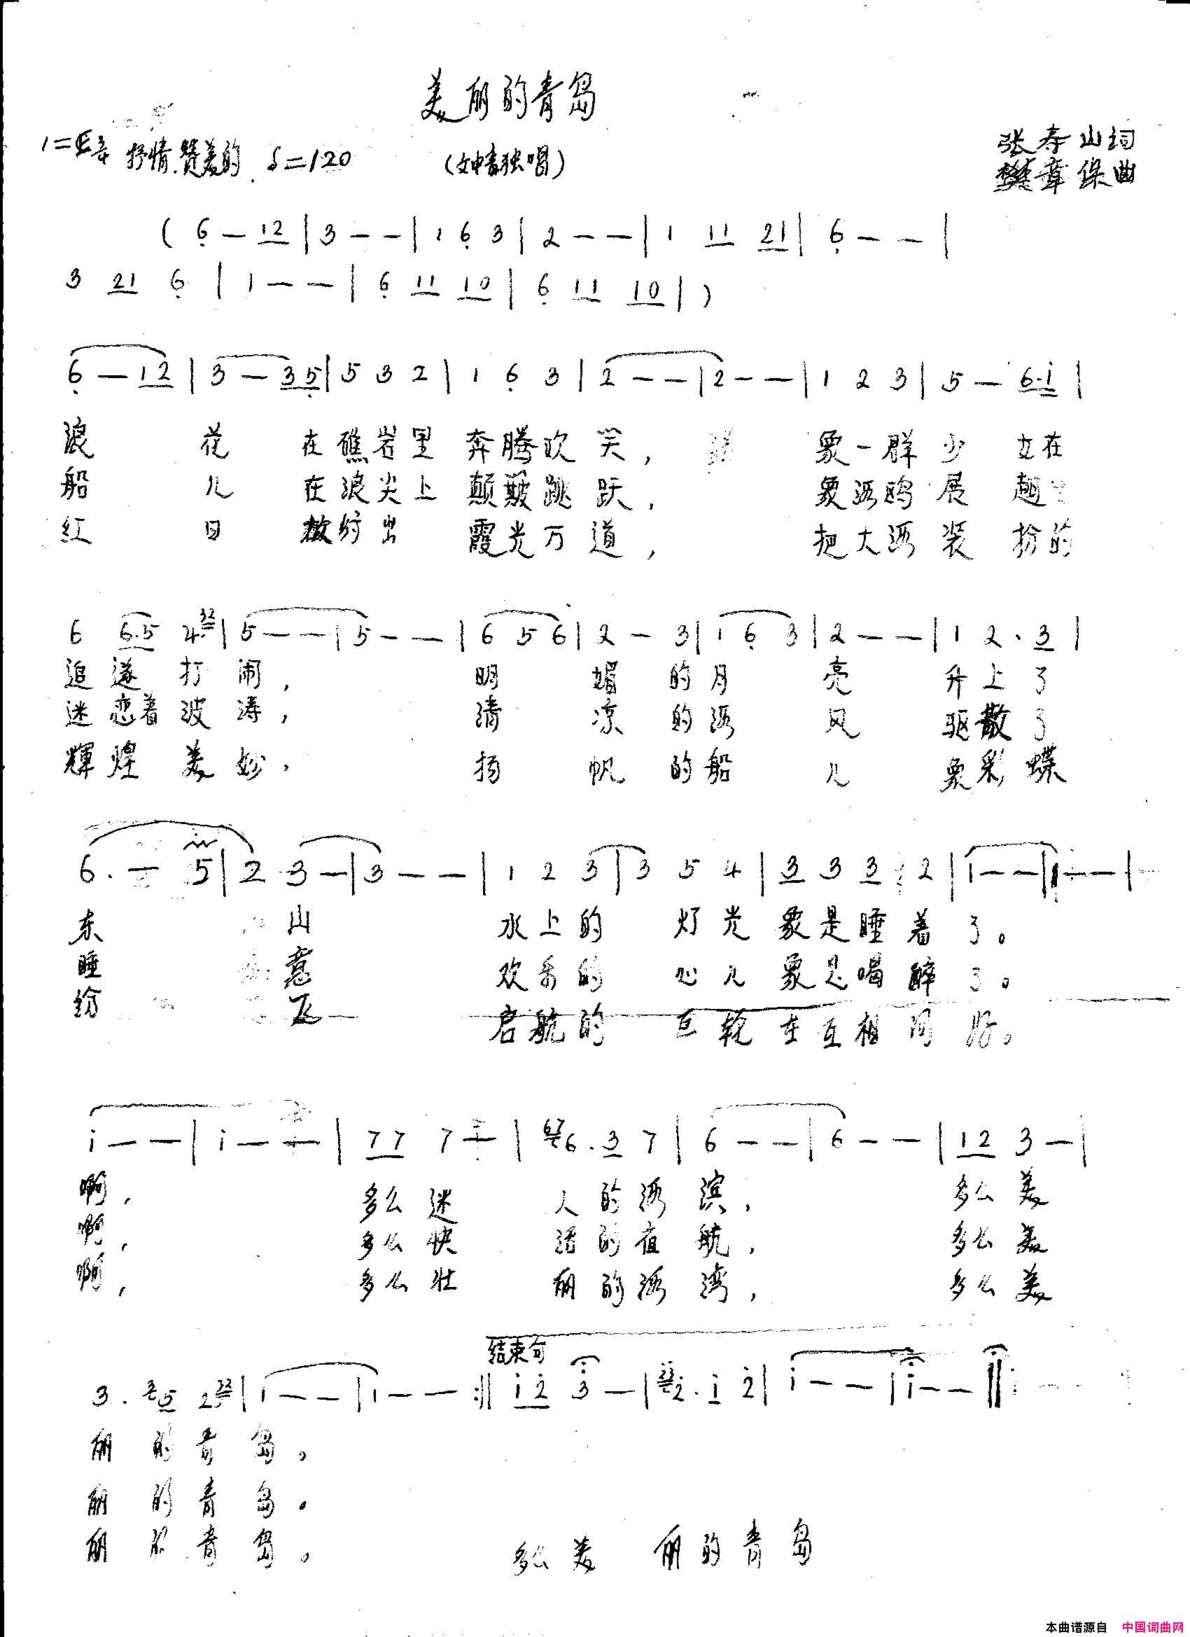 美丽的青岛
1=E 抒情.赞美的 ♩=120 (女中音独唱)
张寿山词
樊章保曲
( 6 — 12 | 3 — — | 1 6 3 | 2 — — | 1 11 21 | 6 — — |
3 21 6 | 1 — — | 6 11 10 | 6 11 10 | )
6 — 12 | 3 — 35 | 5 3 2 | 1 6 3 | 2 — — | 2 — — | 1 2 3 | 5 — 6·i |
浪 花 在礁岩里 奔腾欢笑, 象一群少 女在
船 儿 在浪尖上 颠簸跳跃, 象海鸥展 翅
红 日 放射出 霞光万道, 把大海装 扮的
6 6·5 4 32 | 5 — — | 5 — — | 6 5 6 | 2 — 3 | 1 6 3 | 2 — — | 1 2 · 3 |
追逐打闹, 明 媚的月 亮 升上了
迷恋着波涛, 清 凉的海 风 驱散了
辉煌美妙. 扬 帆的船 儿 象彩蝶
6 · — 5 | 2 3 — | 3 — — | 1 2 3 | 3 5 4 | 3 3 3 2 | 1 — — | 1 — — |
东 山 水上的 灯光象是睡着了。
睡 意 欢乐的 心儿象是喝醉了。
纷 飞 启航的 巨轮在互相问好。
i — — | i — — | 77 7 — | 67 6 · 3 7 | 6 — — | 6 — — | 12 3 — |
啊, 多么迷 人的海滨, 多么美
啊, 多么快 活的夜航, 多么美
啊, 多么壮 丽的海湾, 多么美
结束句
3 · 5 2 32 | i — — | i — — :|| i2 3 — | 2 · i 2 | i — — | i — — ||
丽的青岛。
丽的青岛。
丽的青岛。
多么美 丽的青岛
本曲谱源自 中国词曲网